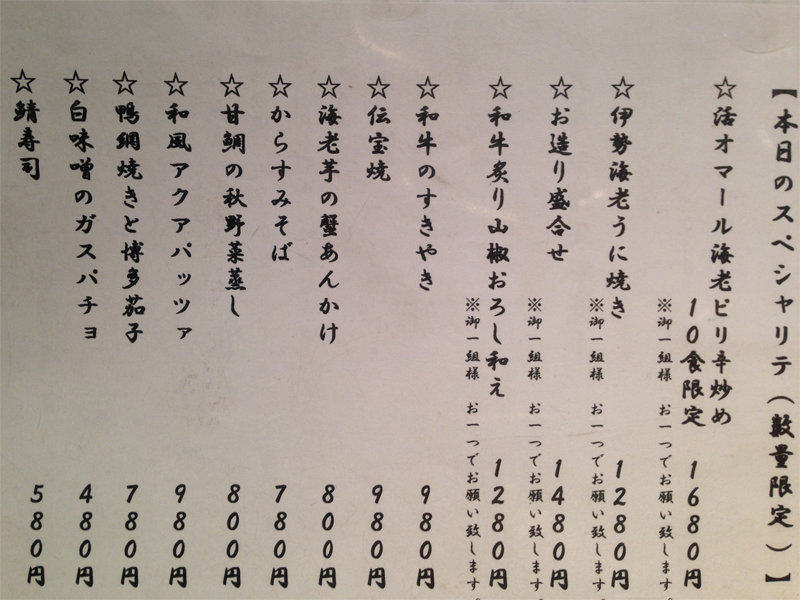 【本日のスペシャリテ（数量限定）】
☆活オマール海老ピリ辛炒め
10食限定 1680円
※御一組様 お一つでお願い致します。
☆伊勢海老うに焼き 1280円
※御一組様 お一つでお願い致します。
☆お造り盛合せ 1480円
※御一組様 お一つでお願い致します。
☆和牛炙り山椒おろし和え 1280円
※御一組様 お一つでお願い致します。
☆和牛のすきやき 980円
☆伝宝焼 980円
☆海老芋の蟹あんかけ 800円
☆からすみそば 780円
☆甘鯛の秋野菜蒸し 800円
☆和風アクアパッツァ 980円
☆鴨網焼きと博多茄子 780円
☆白味噌のガスパチョ 480円
☆鯖寿司 580円